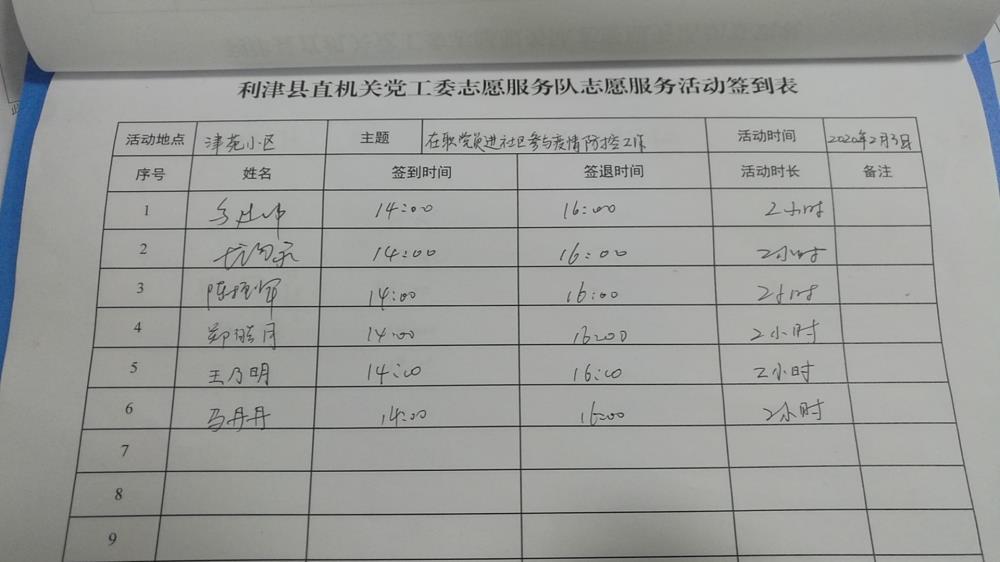 利津县直机关党工委志愿服务队志愿服务活动签到表
活动地点 津苑小区 主题 在职党员进社区参与疫情防控工作 活动时间 2020年2月3日
序号 姓名 签到时间 签退时间 活动时长 备注
1 14:00 16:00 2小时
2 14:00 16:00 2小时
3 14:00 16:00 2小时
4 14:00 16:00 2小时
5 王乃明 14:00 16:00 2小时
6 马丹丹 14:00 16:00 2小时
7
8
9